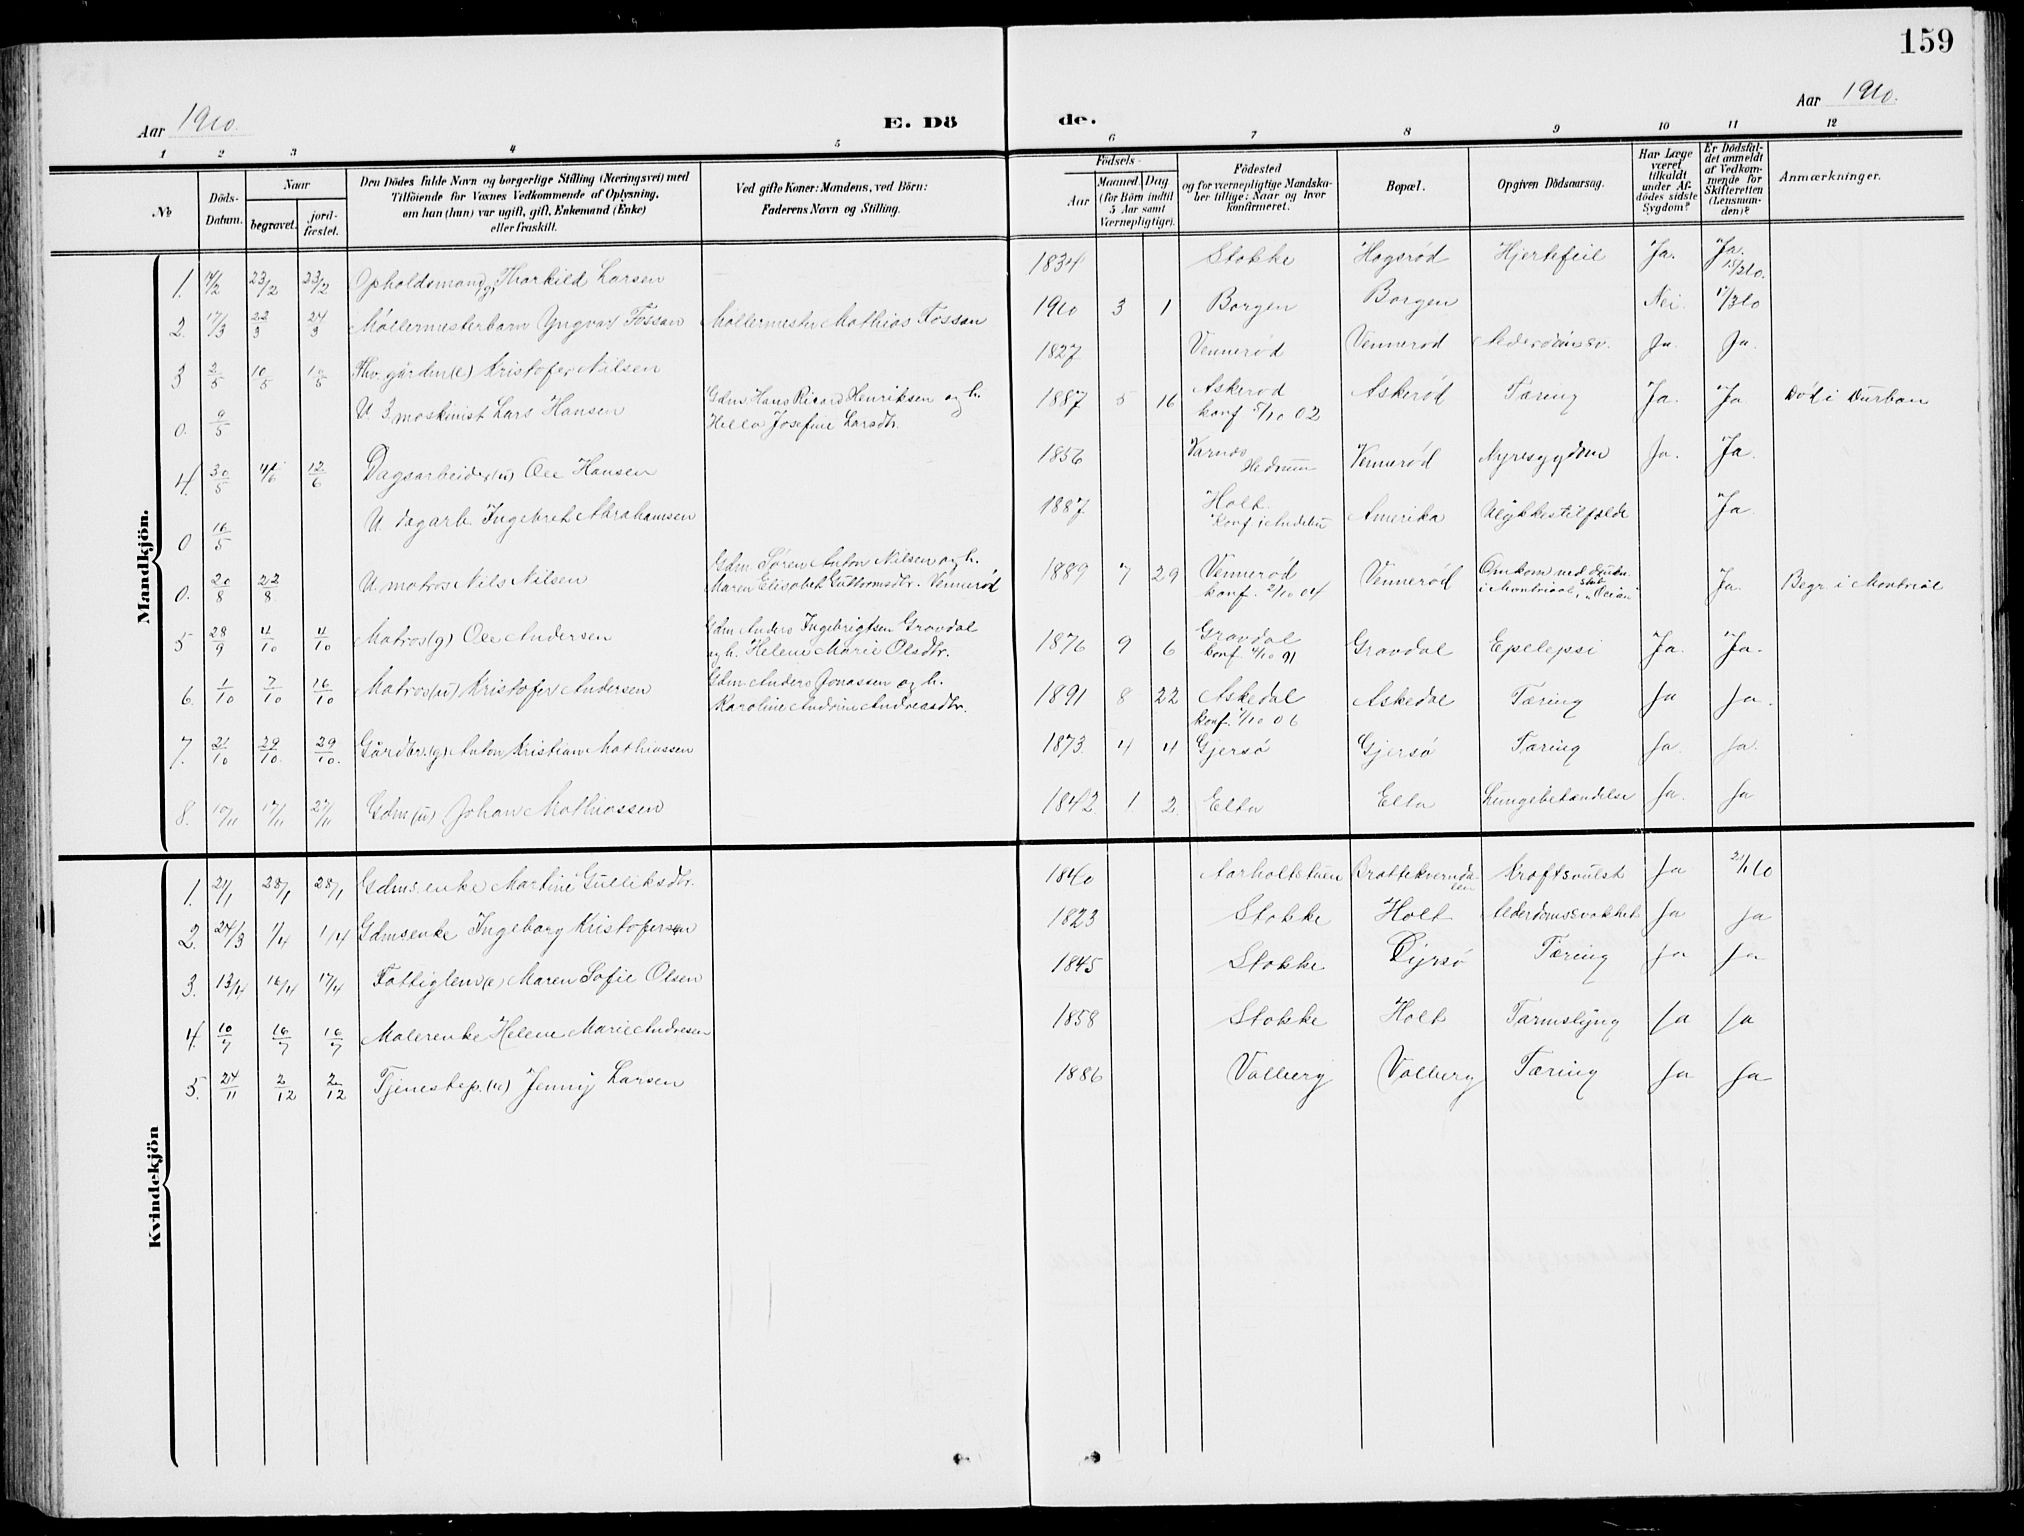 159
Aar 1910.
E. Dö
de.
Aar 1910.
1 2 3 4 5 6 7 8 9 10 11 12
№
Döds-Datum.
Naar
begravet.
jord-fæstet.
Den Dödes fulde Navn og borgerlige Stilling (Næringsvei) med
Tilföiende for Voxnes Vedkommende af Oplysning,
om han (hun) var ugift, gift, Enkemand (Enke)
eller fraskilt.
Ved gifte Koner: Mandens, ved Börn:
Faderens Navn og Stilling.
Födsels-
Aar
Maaned. Dag
(for Börn indtil
5 Aar samt
Værnepligtige).
Födested
og for værnepligtige Mandska-
ber tillige: Naar og hvor
konfirmeret.
Bopæl.
Opgiven Dödsaarsag.
Har Læge
været
tilkaldt
under Af-
dödes sidste
Sygdom?
Er Dödsfal-
det anmeldt
af Vedkom-
mende for
Skifteretten
(Lensman-
den)?
Anmærkninger.
Mandkjön.
1. 14/2 23/2 23/2 Opholdsmand g Thorkild Larsen 1834 Stokke Hogsrød Hjertefeil Ja. Ja. 15/2 10.
2. 17/3 22/3 24/3 Møllermesterbarn Yngvar Fossan Møllermester Mathias Fossan 1910 3 1 Borgen Borgen Nei. 17/3 10
3 2/5 10/5 10/5 Fhv. gårdm (e) Kristofer Nilsen 1827 Vennerød Vennerød Alderdomssv. Ja. Ja.
0. 9/5 U. 3 maskinist Lars Hansen Gdm Hans Ricard Henriksen og h.
Hella Josefine Larsdtr. 1887 5 16 Askerød
konf 5/10 02 Askerød Tæring Ja. Ja Død i Durban
4. 30/5 4/6 12/6 Dagsarbeider (u) Ole Hansen 1856 Varnes
Hedrum Vennerød Nyresygdom Ja. Ja.
0 16/5 U dagarb. Ingebret Abrahamsen 1887 Holt
konf i Andebu Amerika Ulykkestilfælde Ja.
0. 20/8 22/8. U matros Nils Nilsen Gdm. Søren Anton Nilsen og h.
Maren Elisabet Guttormsdtr. Vennerød 1889 7 29 Vennerød
konf. 2/10 04 Vennerød Omkom ved drukn.
i Montreal, skib "Ocian" Ja. Begr. i Montreal
5 28/9 4/10 4/10 Matros (g) Ole Andersen Gdm Anders Ingebrigtsen Gravdal
og h. Helene Marie Olsdtr. 1876 9 6 Gravdal
konf. 4/10 91 Gravdal Epelepsi Ja. Ja.
6. 1/10 7/10 16/10 Matros (u) Kristofer Andersen Gdm Anders Jonassen og h.
Karoline Andrine Andreasdtr. 1891 8 22 Askedal
konf. 7/10 06 Askedal Tæring Ja Ja.
7. 21/10 29/10. 29/10. Gårdbr. (g) Anton Kristian Mathiassen 1873. 4 4 Gjersø Gjersø Tæring Ja. Ja.
8. 10/11 17/11 27/11 Gdm (u) Johan Mathiassen 1842. 1. 2. Elta Elta Lungebetændelse Ja. Ja
Kvindekjön
1. 21/1 28/1 28/1 Gdms. enke Martine Gulliksdtr. 1840 Aarholtstuen Brattekverndalen Kræftsvulst Ja 21/1 10
2. 24/3 1/4 1/4 Gdmsenke Ingeborg Kristofersen 1823 Stokke Holt Alderdomssvakhet Ja Ja
3. 13/4 16/4 17/4 Fattiglem (e) Maren Sofie Olsen 1845 Stokke Gjersø Tæring Ja Ja
4. 10/7 16/7 16/7 Malerenke Helene Marie Andresen 1858 Stokke Holt Tarmslyng Ja Ja
5. 24/11 2/12 2/12 Tjenestep. (u) Jenny Larsen 1886 Valberg Valberg Tæring Ja Ja